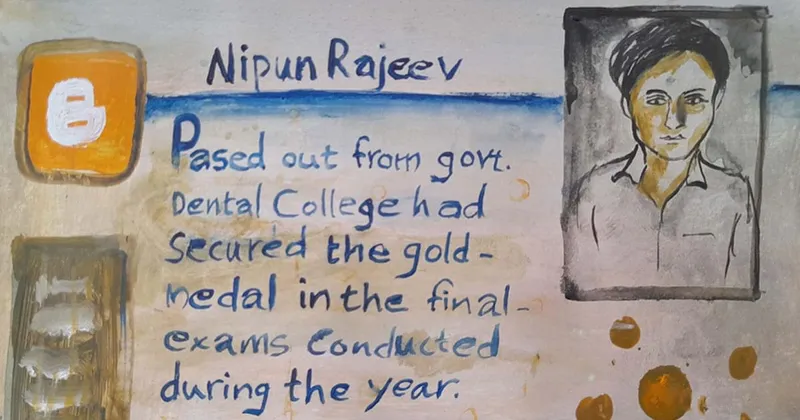 Nipun Rajeev
Pased out from govt.
Dental College had
Secured the gold-
medal in the final-
exams conducted
during the year.